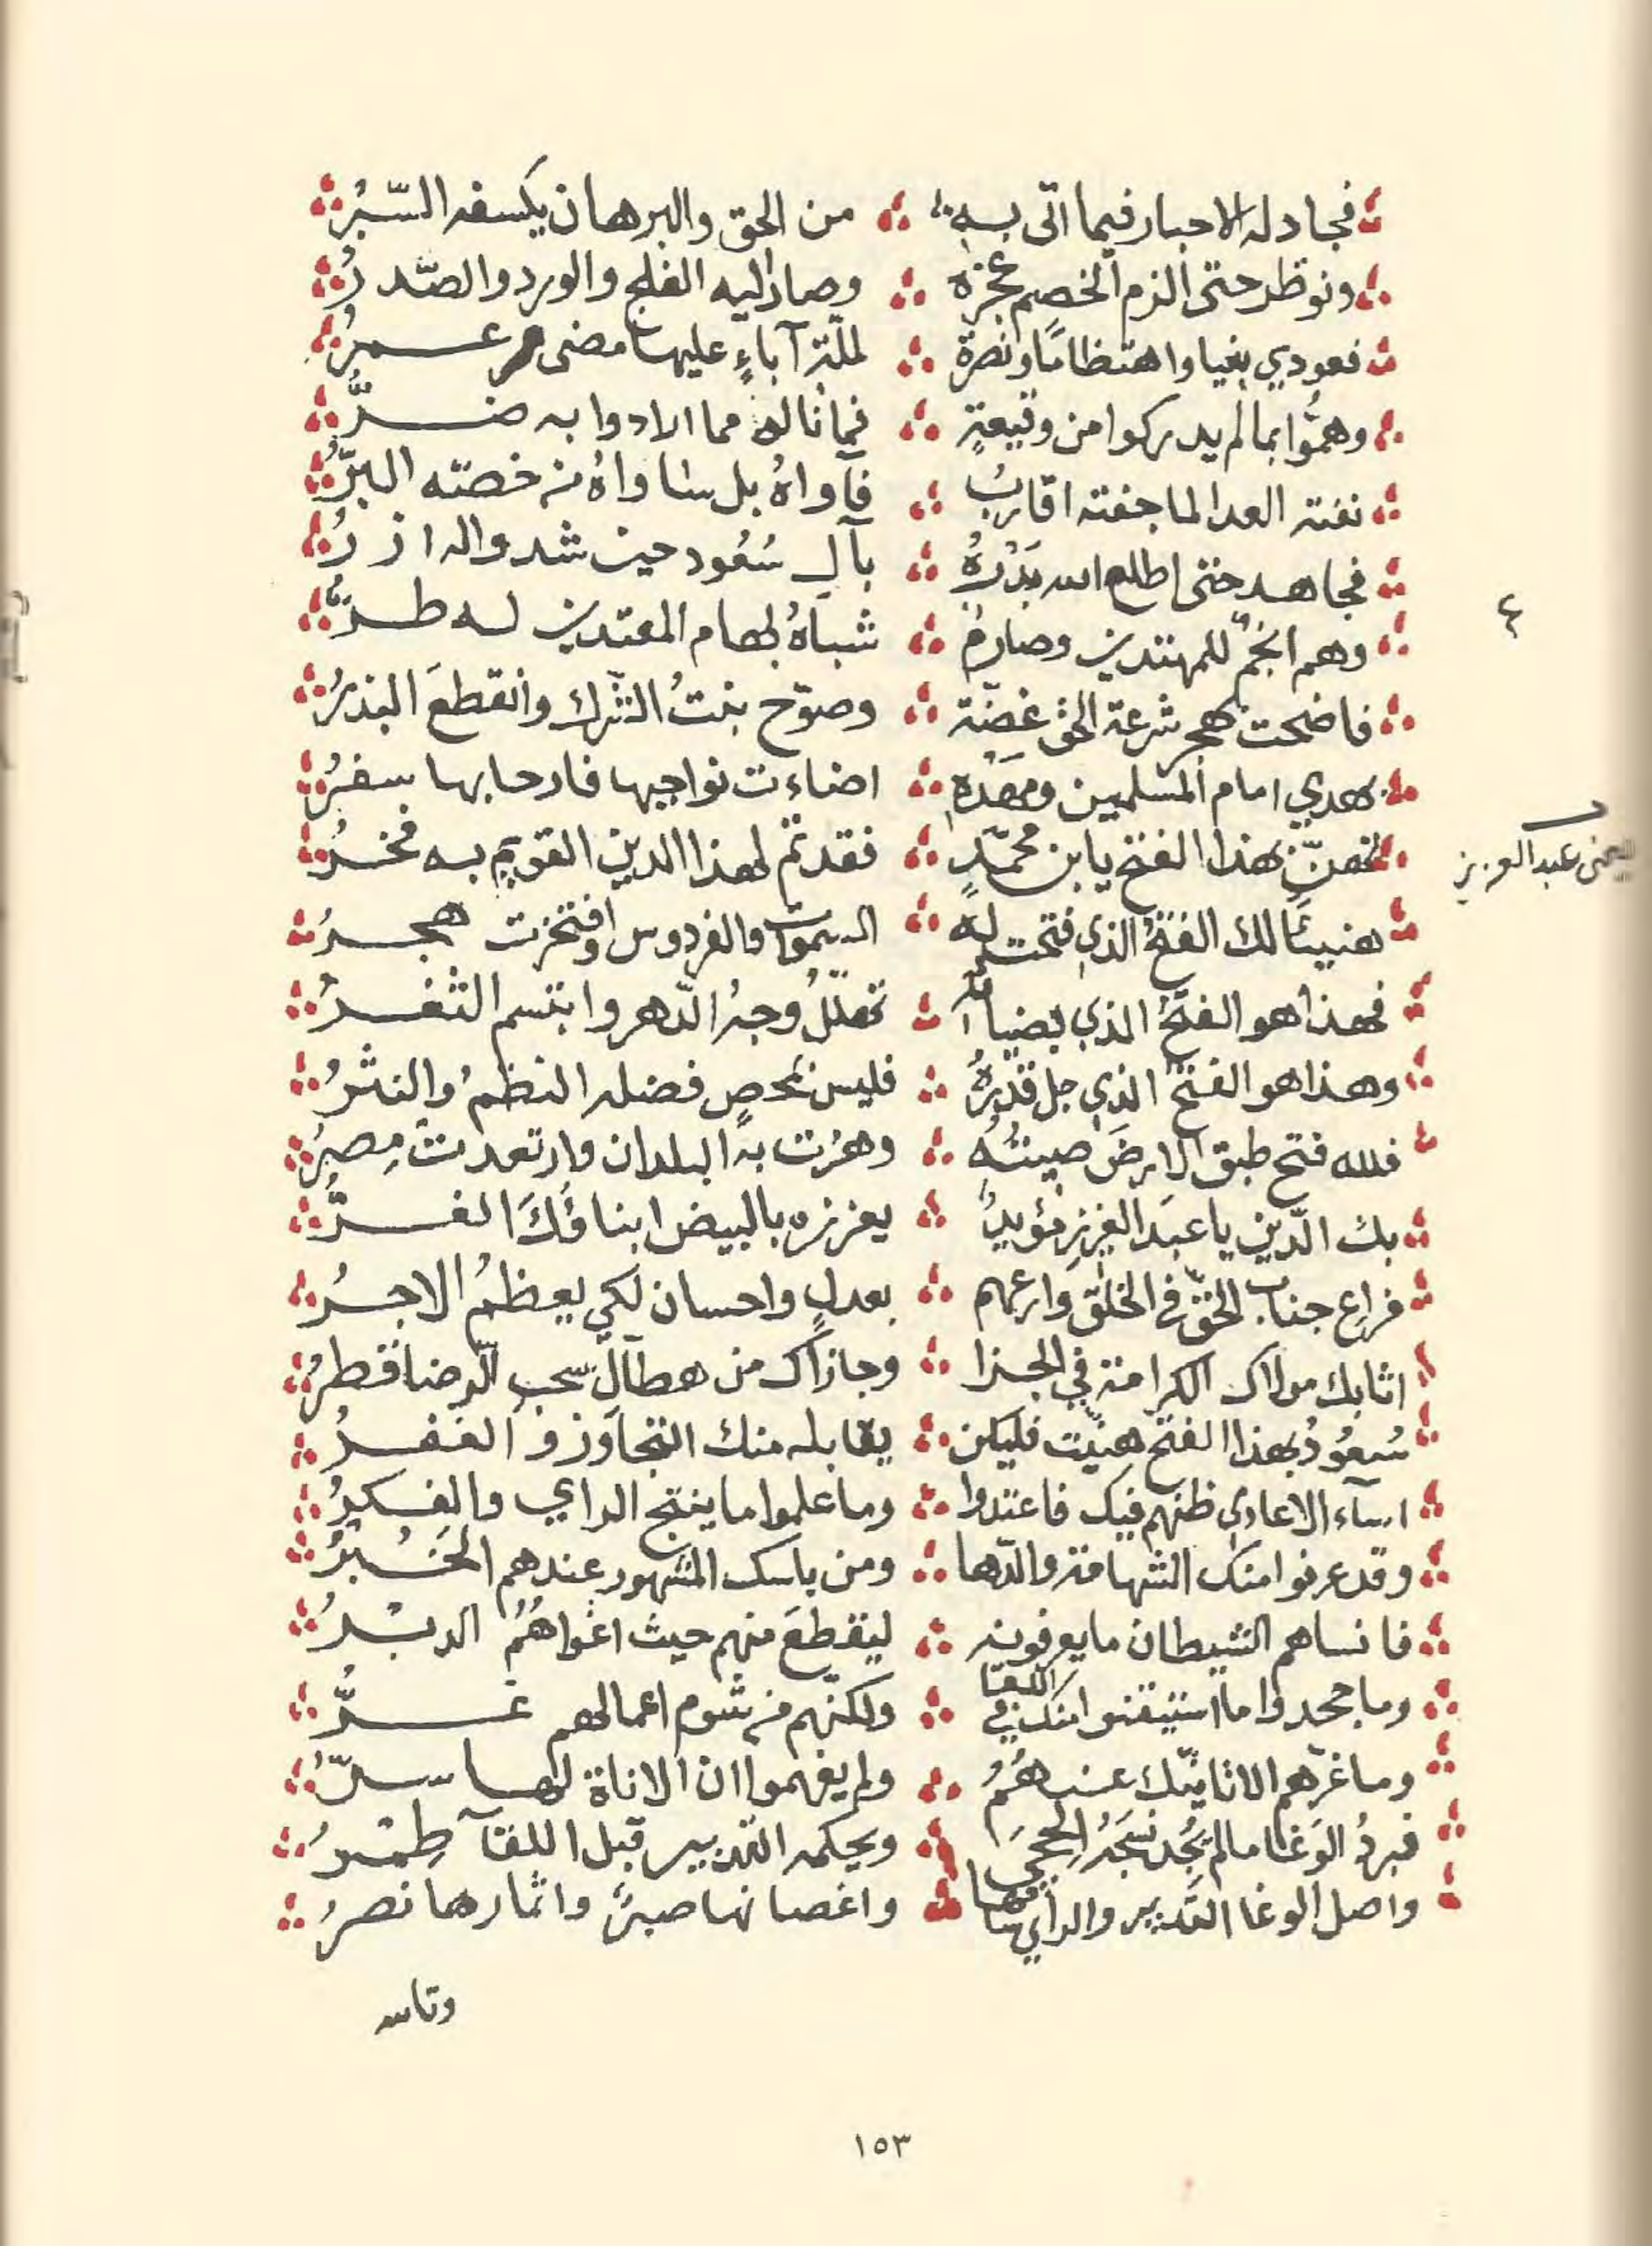 فجادله الاحبار فيما اتى به من الحق والبرهان يكسفه السّبرُ
ونوظر حتى الزم الخصم عجزه وصار اليه الفلج والورد والصّدرُ
فعودي بغيا واهتظامًا ونصرة لملّة آباءٍ عليها مضى عمرُ
وهمّوا بما لم يدركوا من وقيعةٍ فما ناله مما ارادوا به ضرُّ
نفته العدا لما جفته اقاربُ فآواهُ بل ساواهُ من خصّه البرُّ
فجاهد حتى اطلع الله بَدْرَهُ بآلِ سُعُود حين شد واله ازرُ
٤
وهم انجُمٌ للمهتدين وصارمٌ شباهُ لهام المعتدين له طرُّ
فاضحت بهجر شرعة الحق غضّة وصوّح نبتُ الشّرك وانقطعَ البذرُ
بهدي امام المسلمين ومَهْدِهِ اضاءت نواحيها فارحابها سفرُ
يعنى عبد العزيز
لتهنَّ بهذا الفتح يا ابن محمّدٍ فقد تمّ لهذا الدين القويم به فخرُ
هنيئًا لك الفتح الذي فتحت له السموات والفردوس وافتخرت هجرُ
فهذا هو الفتحُ الذي بضيائه تهلّلُ وجهُ الدّهر وابتسم الثغرُ
وهذا هو الفتحُ الذي جل قدْرُهُ فليس بمحصٍ فضله النظمُ والنثرُ
فلله فتح طبق الارضَ صيتُهُ وهزت به البلدان وارتعدت مِصرُ
بك الدّين يا عبدَ العزيز مؤيدٌ يعززه بالبيض ابناؤكَ الغرُّ
فراعِ جناب الحقّ في الخلق وارعهم بعدلٍ واحسان لكي يعظمُ الاجرُ
اثابك مولاك الكرامة في الجزا وجازاك من هطآل سحب الرضا قطرُ
سُعُودُ بهذا الفتح هنّيت فليكن يقابله منك التجاوز والغفرُ
اساء الاعادي ظنهم فيك فاعتدوا وما علموا ما ينتج الراي والفكرُ
وقد عرفوا منك الشهامة والدّها ومن باسك المشهور عندهم الخُبْرُ
فانساهم الشيطان ما يعرفونه ليقطعَ منهم حيث اغواهُمُ الدبْرُ
وما جحدوا ما استيقنوا منك في اللقا ولكنّهم من شوم اعمالهم غرُّ
وما غرّهم الا تانّيك عنهُمُ ولم يفهموا ان الاناة لها سرُّ
فبردُ الوَغا ما لم يُجُد نسجَهُ الحِجى ويحكمه التدبير قبل اللقآ طِمْرُ
واصل الوغا التّدبير والراي ساقها واغصانها صبرٌ واثمارها نصرُ
وتاسه
١٥٣